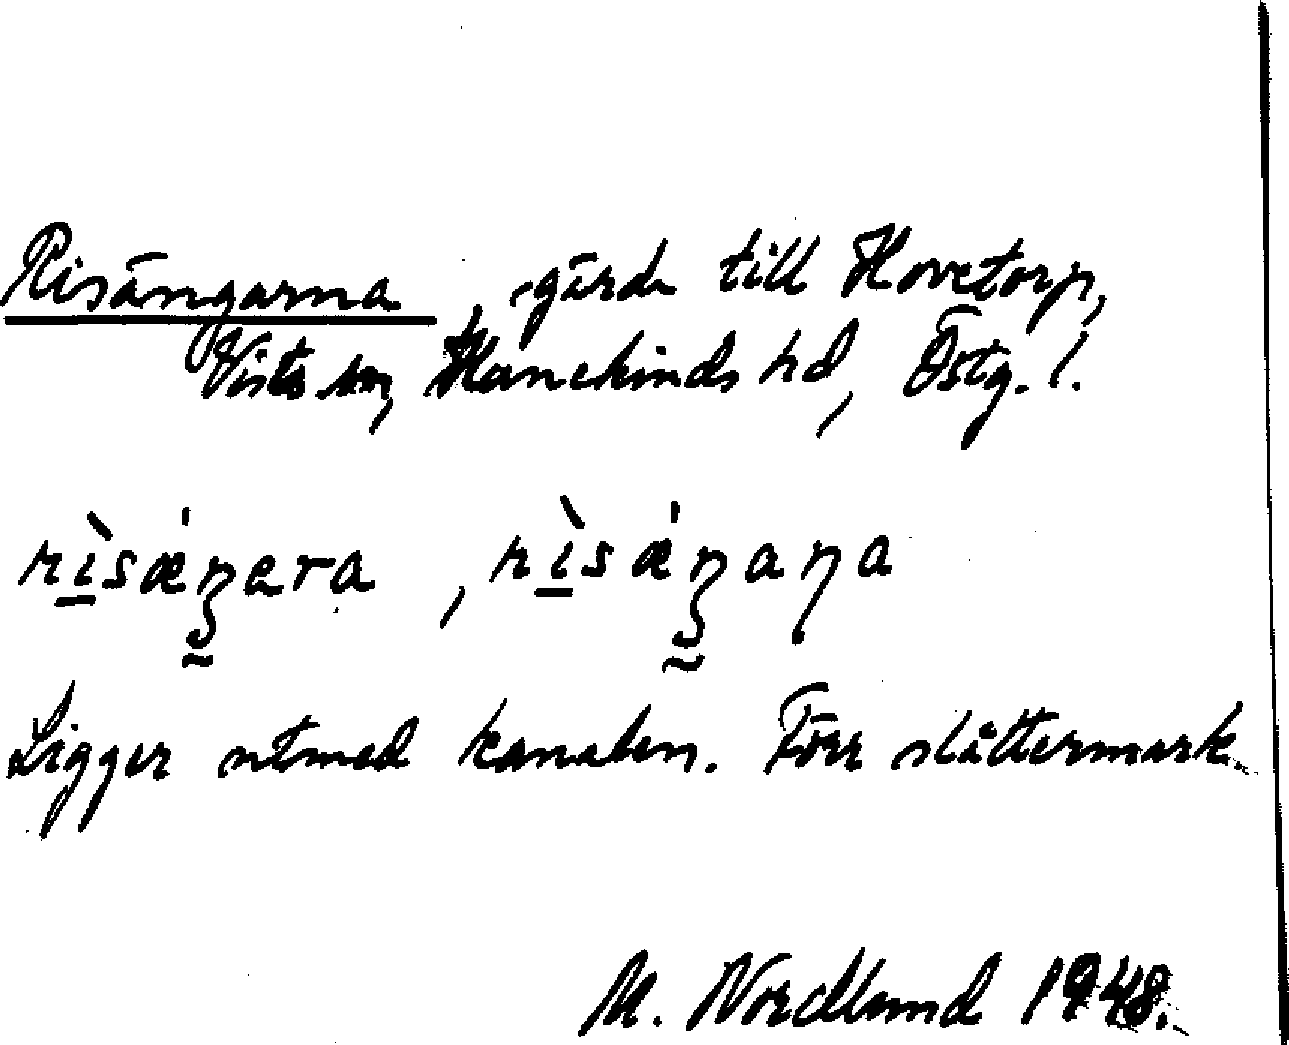 Risängarna, gärde till Hovetorp,
Vists sn, Hanekinds hd, Östg. l.
rìsǽŋera, rìsǽŋaɳa
Ligger utmed kanalen. Förr slåttermark.
M. Nordlund 1948.